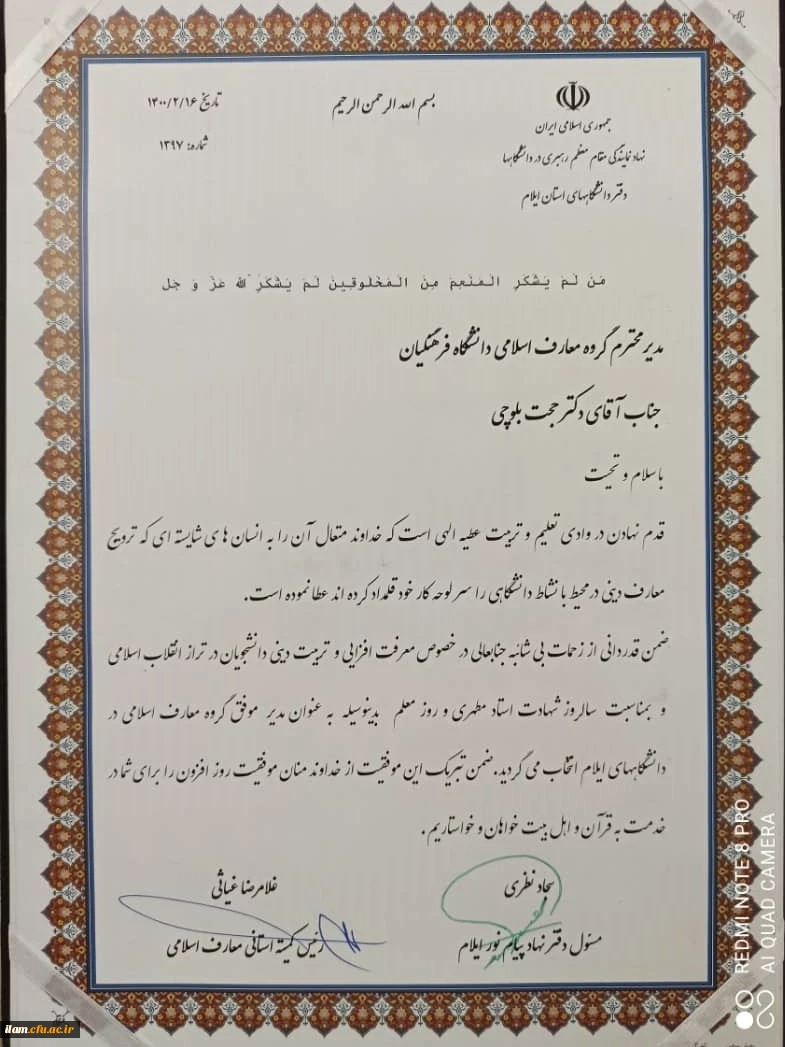 بسم الله الرحمن الرحیم
جمهوری اسلامی ایران
نهاد نمایندگی مقام معظم رهبری در دانشگاهها
دفتر دانشگاههای استان ایلام
تاریخ ۱۴۰۰/۲/۱۶
شماره: ۱۳۹۷
مَن لَم یَشکُرِ المُنعِمَ مِنَ المَخلوقینَ لَم یَشکُرِ الله عَزَّ وَ جَل
مدیر محترم گروه معارف اسلامی دانشگاه فرهنگیان
جناب آقای دکتر حجت بلوچی
با سلام و تحیت
قدم نهادن در وادی تعلیم و تربیت عطیه الهی است که خداوند متعال آن را به انسان های شایسته ای که ترویج
معارف دینی در محیط با نشاط دانشگاهی را سرلوحه کار خود قلمداد کرده اند عطا نموده است.
ضمن قدردانی از زحمات بی شائبه جنابعالی در خصوص معرفت افزایی و تربیت دینی دانشجویان در تراز انقلاب اسلامی
و بمناسبت سالروز شهادت استاد مطهری و روز معلم بدینوسیله به عنوان مدیر موفق گروه معارف اسلامی در
دانشگاههای ایلام انتخاب می گردید. ضمن تبریک این موفقیت از خداوند منان موفقیت روز افزون را برای شما در
خدمت به قرآن و اهل بیت خواهان و خواستاریم.
سجاد نظری
مسئول دفتر نهاد پیام نور ایلام
غلامرضا غیاثی
رئیس کمیته استانی معارف اسلامی
REDMI NOTE 8 PRO
AI QUAD CAMERA
ilam.cfu.ac.ir